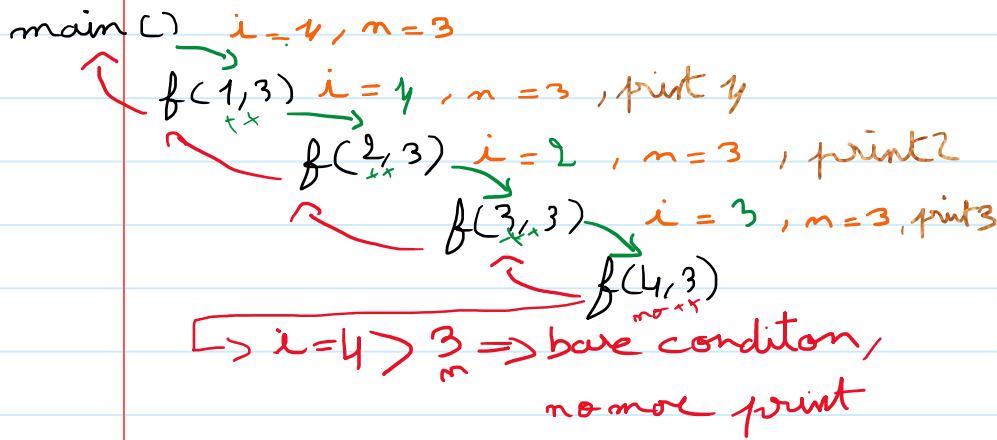 main() i = 1, n = 3
f(1,3) i = 1, n = 3, print 1
++
f(2,3) i = 2, n = 3, print 2
++
f(3,3) i = 3, n = 3, print 3
++
f(4,3)
no ++
i = 4 > 3 => base conditon,
n
no more print